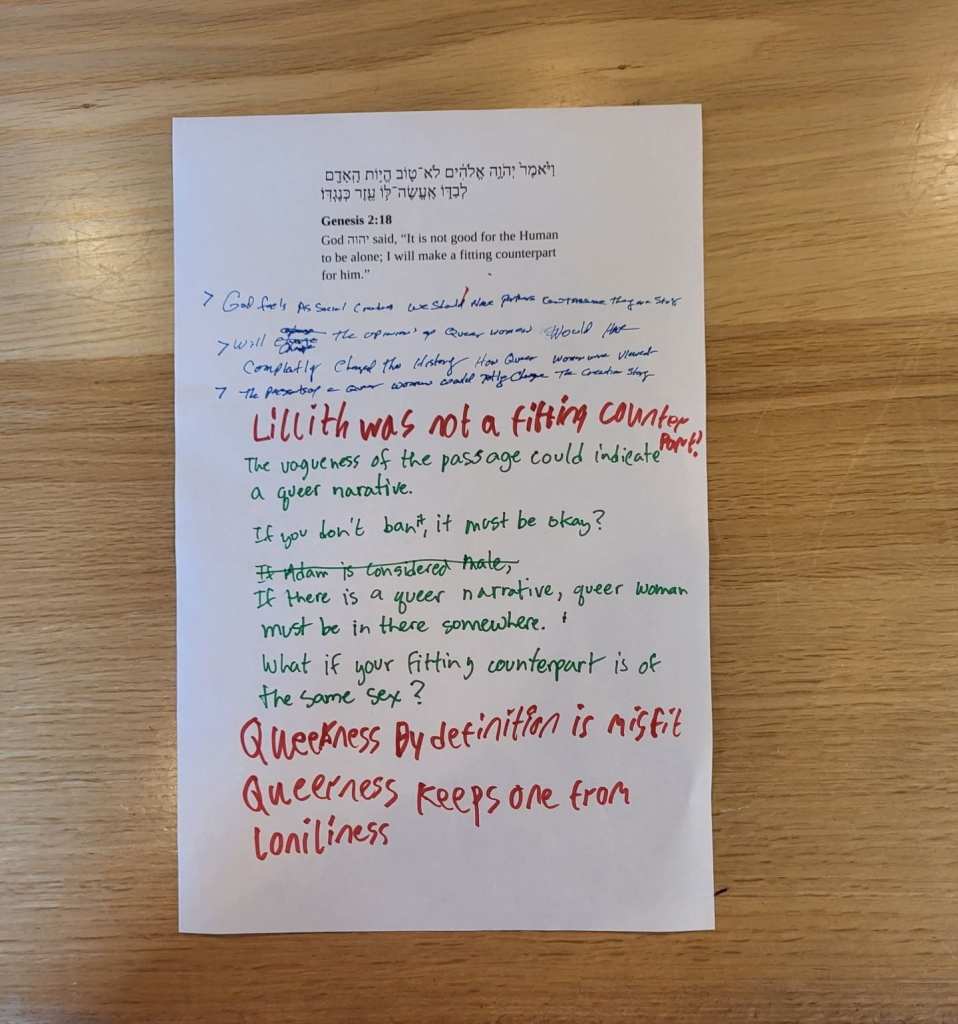 וַיֹּאמֶר֙ יְהֹוָ֣ה אֱלֹהִ֔ים לֹא־ט֛וֹב הֱי֥וֹת הָֽאָדָ֖ם
לְבַדּ֑וֹ אֶֽעֱשֶׂה־לּ֥וֹ עֵ֖זֶר כְּנֶגְדּֽוֹ׃
Genesis 2:18
God יהוה said, “It is not good for the Human
to be alone; I will make a fitting counterpart
for him.”
> God feels As Social we Should Have
> Will The opinion's of Queer women Would Have
Complatly Changed the History How Queer women were viewed
> The of a Queer women could Change The Creation Story
Lillith was not a fitting counter
Part!
The vagueness of the passage could indicate
a queer narative.
If you don't ban it, it must be okay?
If Adam is considered male,
If there is a queer narrative, queer woman
must be in there somewhere.
What if your fitting counterpart is of
the same sex?
Queerness By definition is misfit
Queerness keeps one from
Loniliness